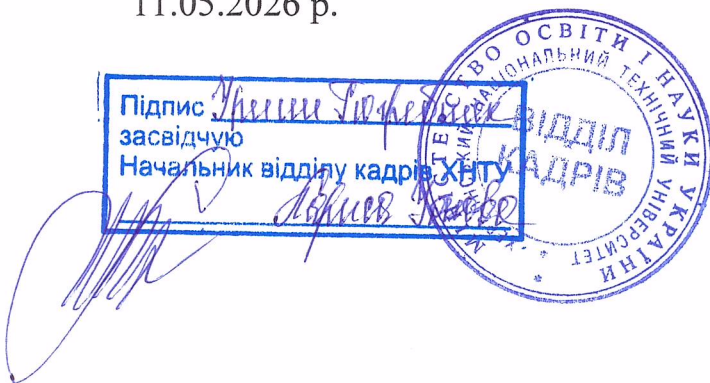 11.05.2026 р.
Підпис Ірини
засвідчую
Начальник відділу кадрів ХНТУ
МІНІСТЕРСТВО ОСВІТИ І НАУКИ УКРАЇНИ
НАЦІОНАЛЬНИЙ ТЕХНІЧНИЙ УНІВЕРСИТЕТ
ВІДДІЛ
КАДРІВ